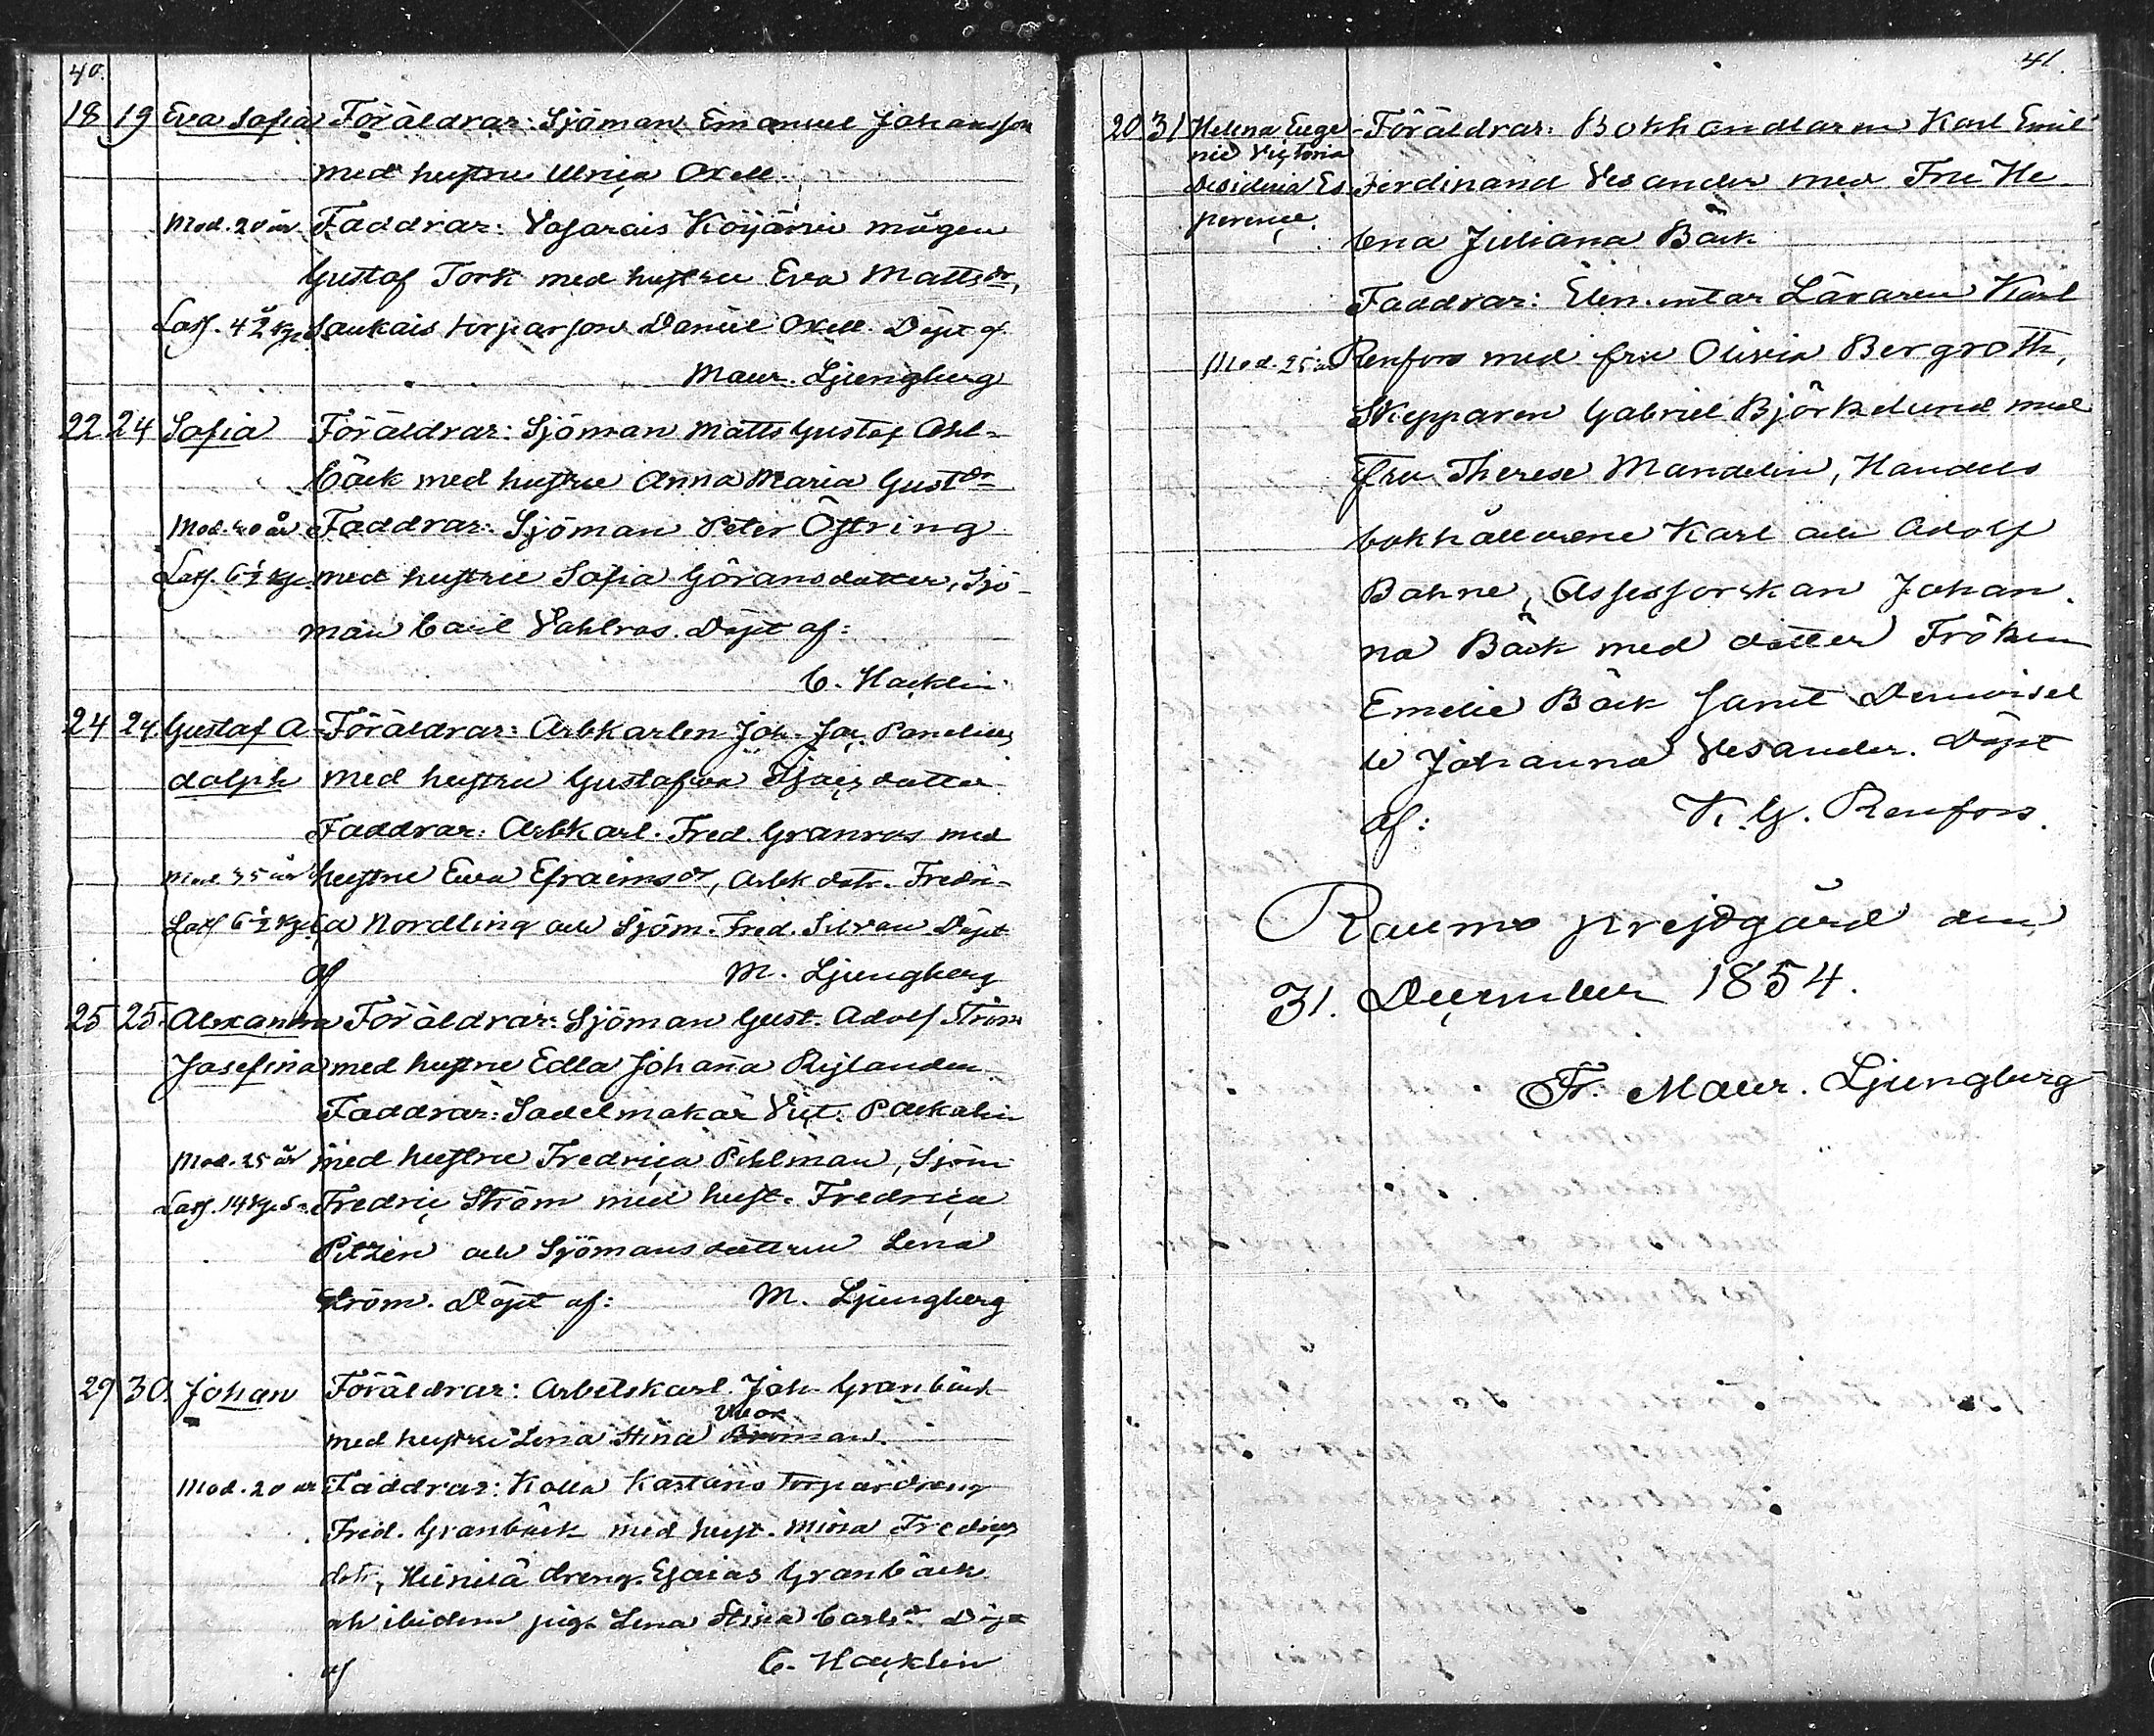 40.
18 19 Eva Sofia Föräldrar: Sjöman Emanuel Johansson
med hustru Ulrica Oxell.
Mod. 20 år Faddrar: Vasarais Köijäri mågen
Gustaf Tork med hustru Eva Mattsdr,
Lass. 4½ kp. Saukais torparson Daniel Oxell. Döpt af
Maur. Ljungberg
22 24 Sofia Föräldrar: Sjöman Matts Gustaf Ahl-
bäck med hustru Anna Maria Gustdr
Mod. 20 år Faddrar: Sjöman Peter Öström
med hustru Sofia Göransdotter, Sjö-
Lass. 6½ kp.
man Carl Vahlros. Döpt af:
C. Hacklin
24 24 Gustaf A- Föräldrar: Arbkarlen Joh. Jac. Panelius
dolph med hustru Gustafva Esaiædotter
Faddrar: Arbkarl. Fred. Granroos med
Mod 35 år hustru Eva Efraimsdr, Arbk dotr. Fredri-
Lass 6½ kp ca Nordling och Sjöm. Fred. Silvan Döpt
af M. Ljungberg
25 25. Alexandra Föräldrar: Sjöman Gust. Adolf Ström
Josefina med hustru Edla Johanna Rejlander.
Faddrar: Sadelmakar Vict. Packalin
Mod. 25 år med hustru Fredrica Pihlman, Sjöm
Fredric Ström med hust. Fredrica
Pitzén och Sjömansdottren Lena
Ström. Döpt af: M. Ljungberg
29 30. Johan Föräldrar: Arbetskarl. Joh. Granbäck
med hustru Lena Stina Broman.
Mod. 20 år Faddrar: Kolla Kastans torpardreng
Fred. Granbäck med hust. Mina Fredrics
dotr, dreng. Esaias Granbäck
och ibidem pig. Lena Stina Carlsdr Döpt
af C. Hacklin
41.
20 31 Helena Euge- Föräldrar: Bokhandlaren Karl Emil
nie Victoria
Desideria Es- Ferdinand Vesander med Fru He-
perence.
lena Juliana Bäck
Faddrar: Elementar Läraren Karl
Mod. 25 år Renfors med fru Olivia Bergroth,
Skepparen Gabriel Björkelund med
Fru Therese Mandelin, Handels
bokhållarene Karl och Adolf
Bahne, Assessorskan Johan-
na Bäck med dotter Fröken
Emelie Bäck samt Demoisel
le Johanna Vesander. Döpt
af: K. G. Renfors.
Raumo prestgård den
31. December 1854.
Fr. Maur. Ljungberg